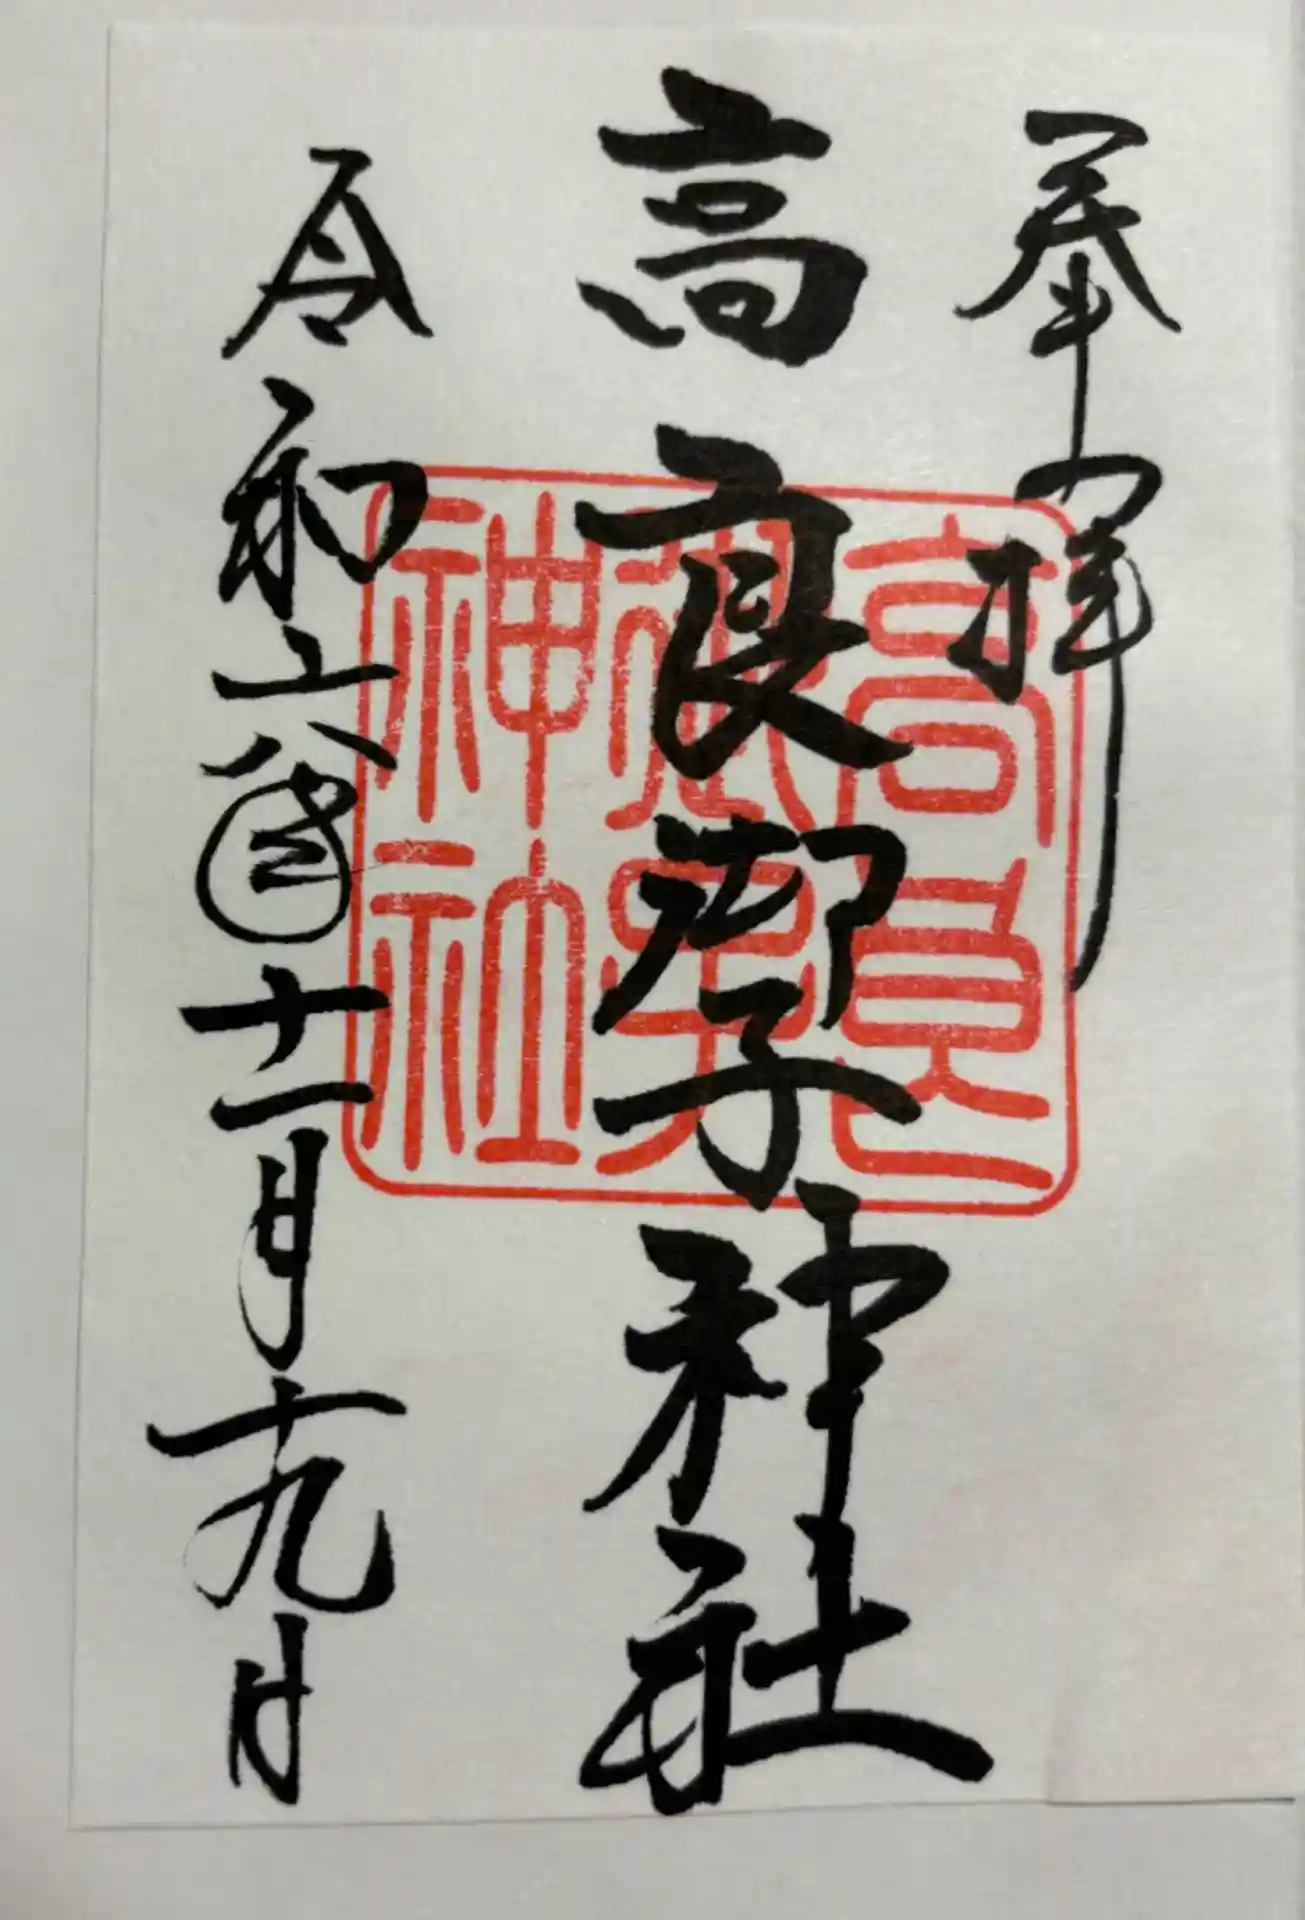 奉拝
高良御子神社
令和六年十一月十九日
高良
御子
神社